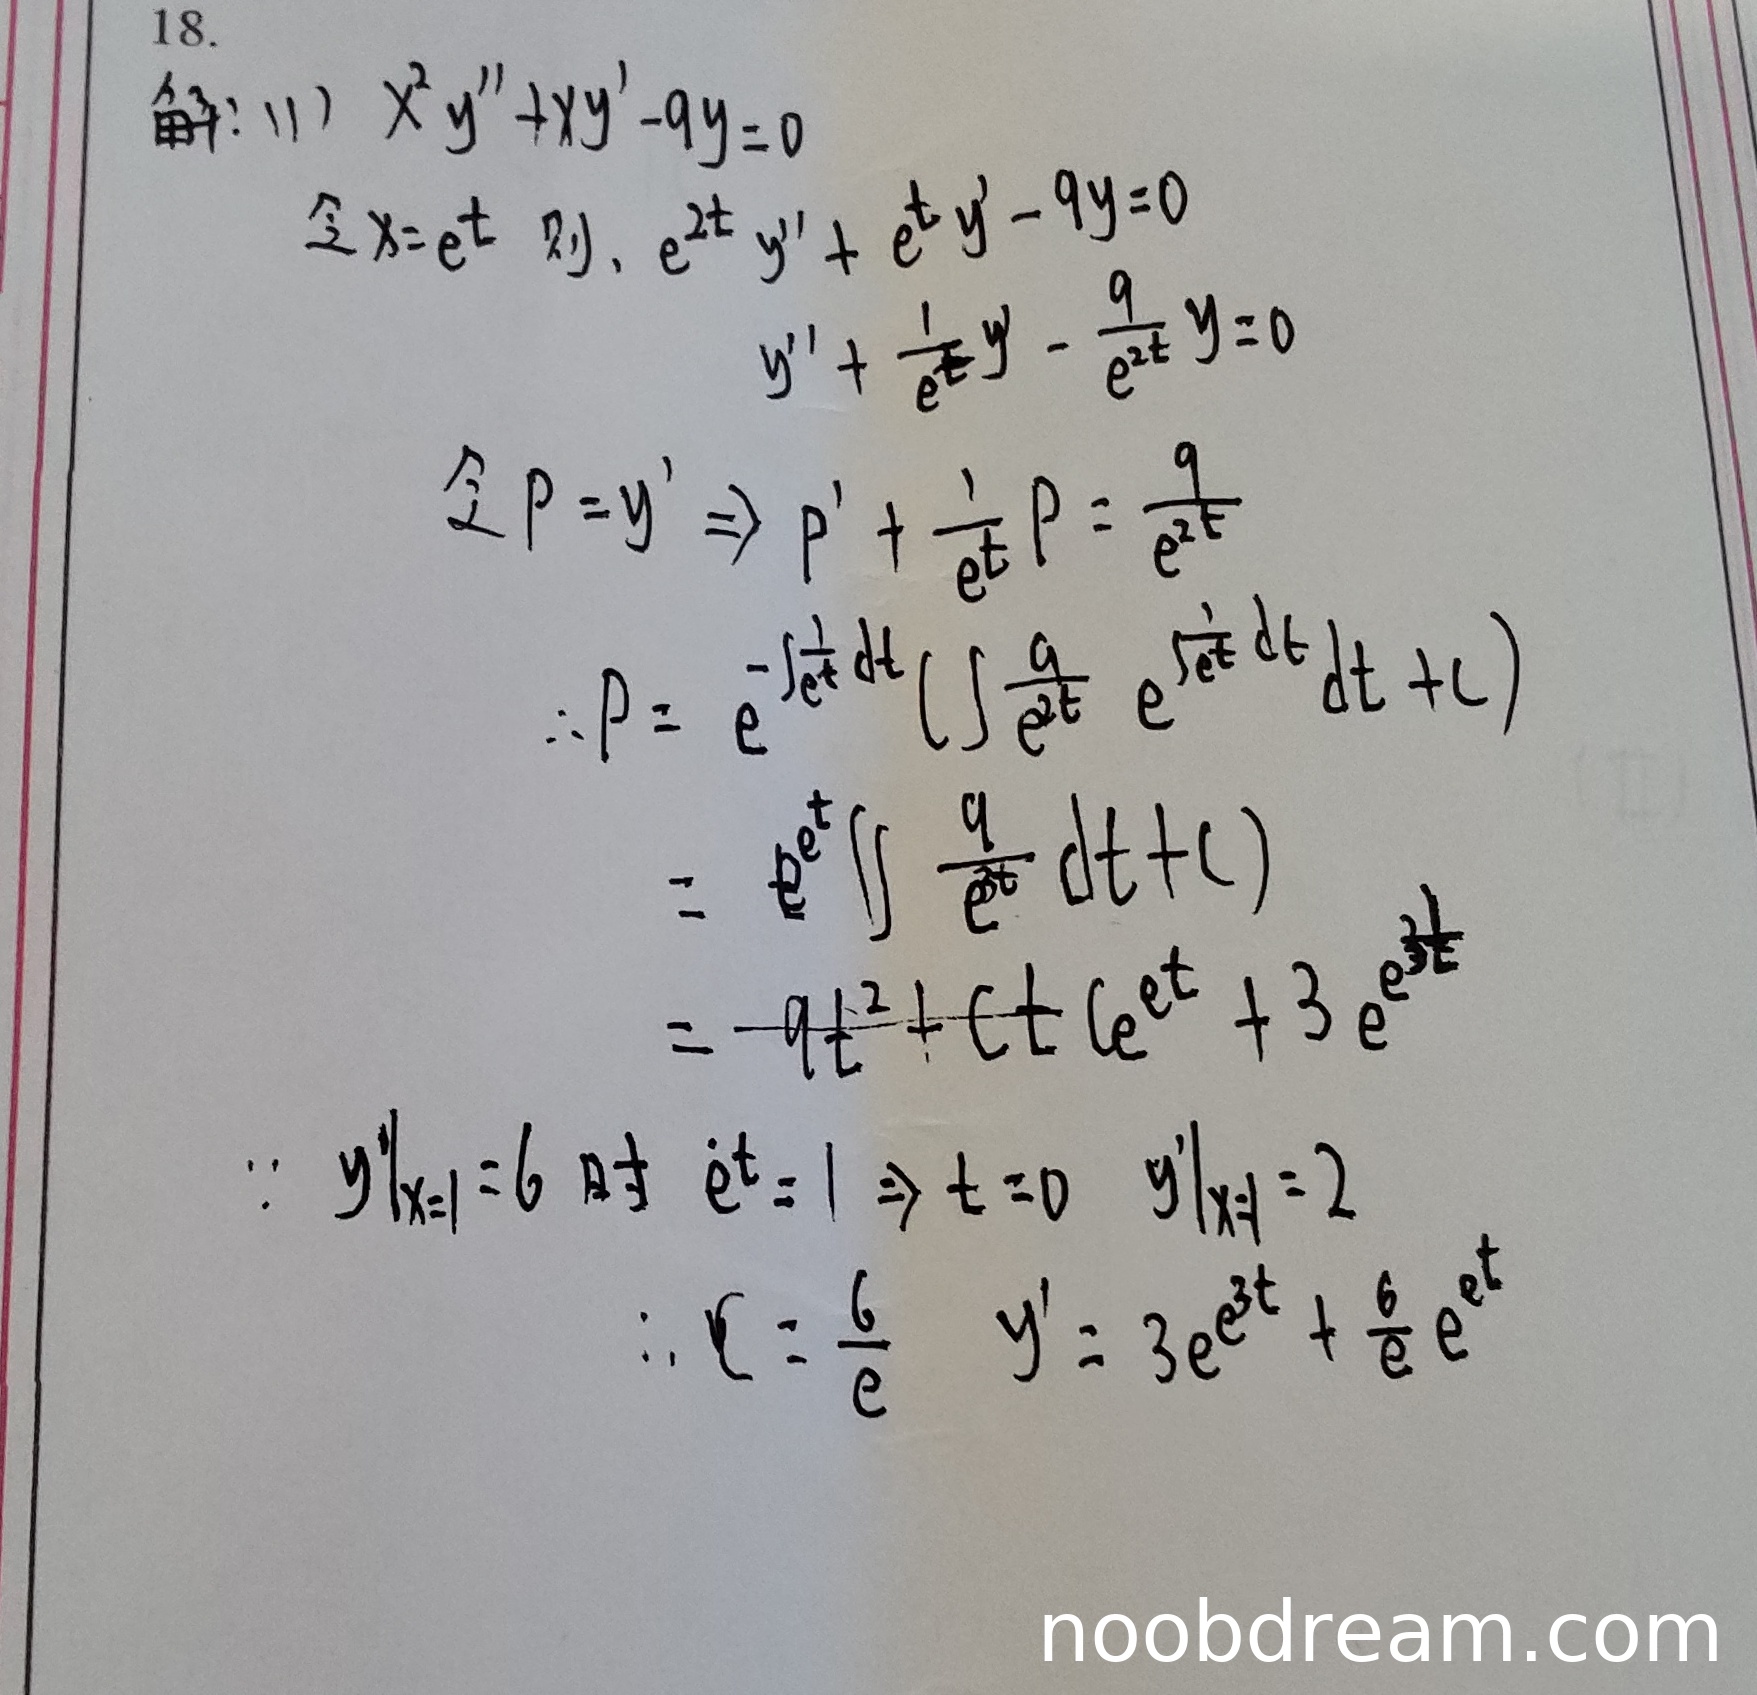 18.
解:(1) x²y''+xy'-9y=0
令x=e^t 则, e^{2t}y''+e^t y'-9y=0
y''+\frac{1}{e^t}y'-\frac{9}{e^{2t}}y=0
令P=y' ⇒ P'+\frac{1}{e^t}P=\frac{9}{e^{2t}}
∴P=e^{-∫\frac{1}{e^t}dt}(∫\frac{9}{e^{2t}}e^{∫\frac{1}{e^t}dt}dt+C)
=e^{e^t}(∫\frac{9}{e^{3t}}dt+C)
=Ce^{e^t}+3e^{e^{3t}}
∵ y'|_{x=1}=6时 e^t=1⇒t=0 y'|_{x=1}=2
∴C=\frac{6}{e} y'=3e^{e^{3t}}+\frac{6}{e}e^{e^t}
noobdream.com